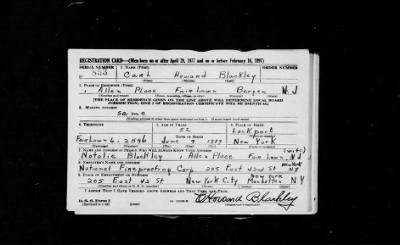 REGISTRATION CARD—(Men born on or after April 28, 1877 and on or before February 16, 1897)
SERIAL NUMBER 1. NAME (Print) ORDER NUMBER
U 555 Carl Howard Blackley
2. PLACE OF RESIDENCE (Print)
1 Allen Place Fair Lawn Bergen N.J
[THE PLACE OF RESIDENCE GIVEN ON THE LINE ABOVE WILL DETERMINE LOCAL BOARD JURISDICTION; LINE 2 OF REGISTRATION CERTIFICATE WILL BE IDENTICAL]
3. MAILING ADDRESS
Same
4. TELEPHONE 5. AGE IN YEARS 6. PLACE OF BIRTH
52 Lockport
DATE OF BIRTH
Fairlawn 6-2546 June New York
7. NAME AND ADDRESS OF PERSON WHO WILL ALWAYS KNOW YOUR ADDRESS (wife)
Natalie Blackley 1 Allen Place Fair Lawn N J
8. EMPLOYER'S NAME AND ADDRESS
National Fireproofing Corp. 205 East 42nd St NY
9. PLACE OF EMPLOYMENT OR BUSINESS New York
205 East 42 St New York City Manhattan NY
I AFFIRM THAT I HAVE VERIFIED ABOVE ANSWERS AND THAT THEY ARE TRUE.
D. S. S. Form 1
Howard Blackley